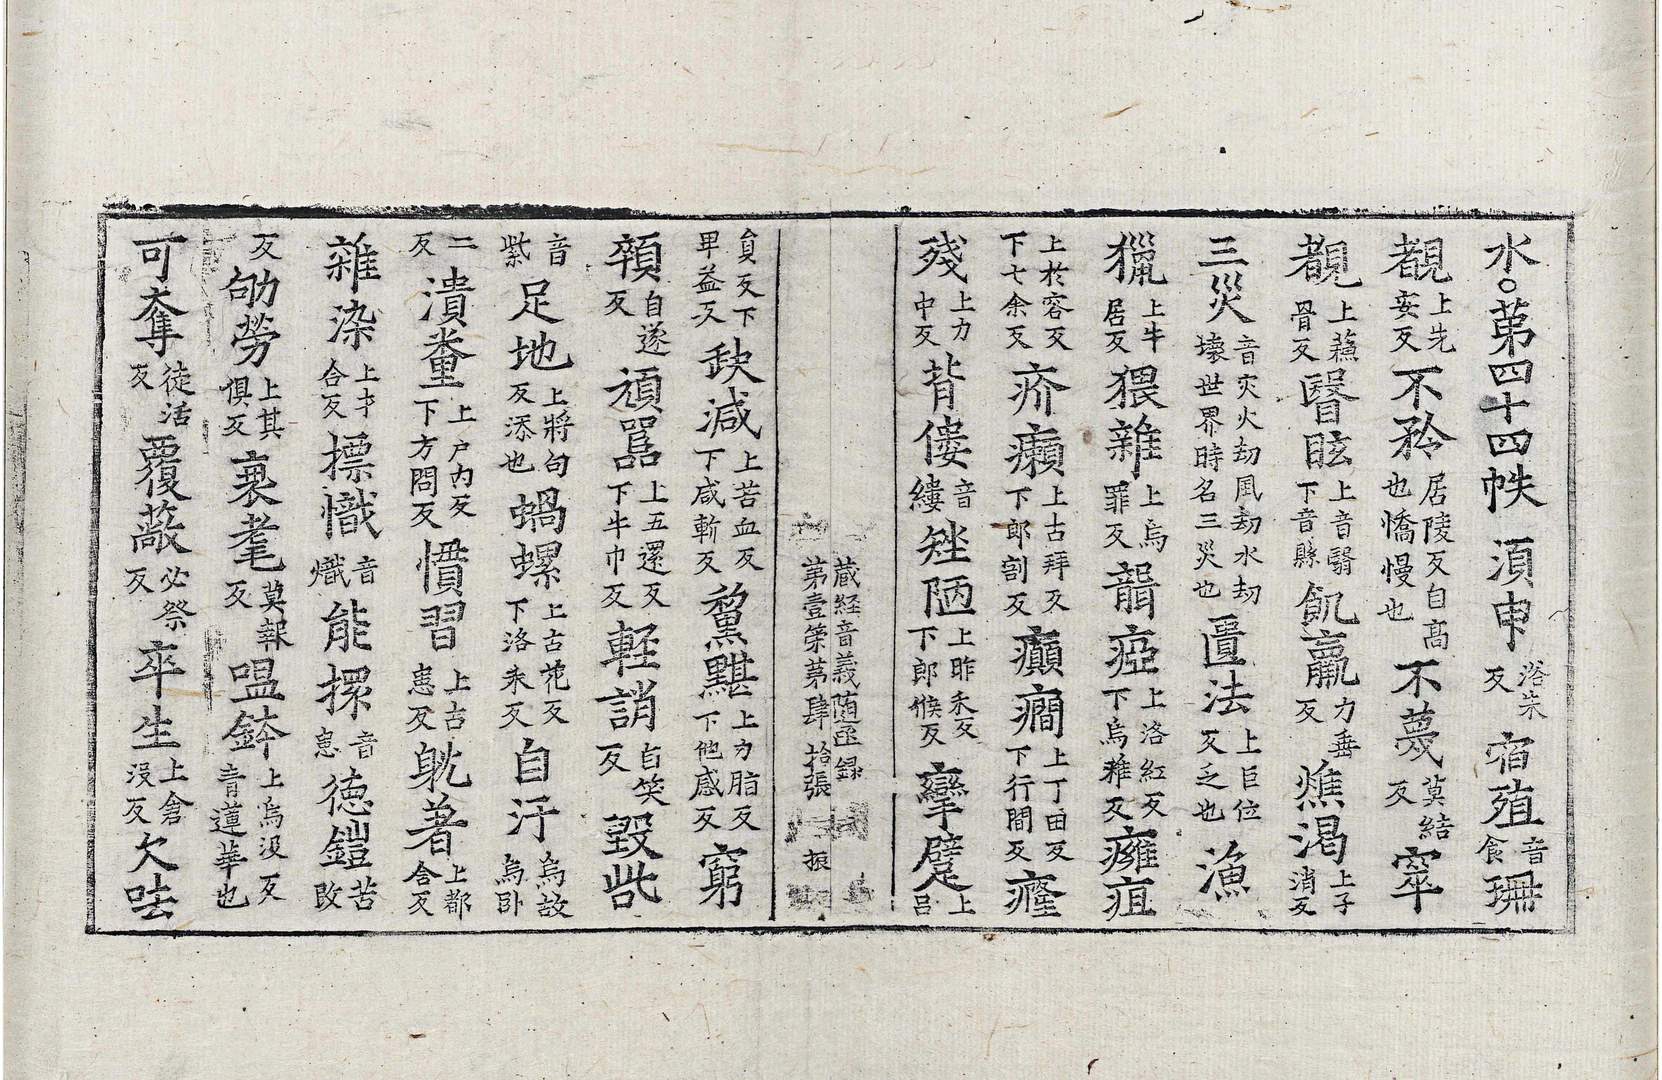 水○第四十四帙須申浴朱反宿殖音食珊
覩上先妄反不矜居陵反自高也憍慢也不蔑莫結反窣
覩上蘓骨反瞖眩上音翳下音縣飢羸力垂反燋渴上子消反
三災音灾火劫風劫水劫壊世界時名三災也匱法上巨位反乏也漁
獵上牛居反猥雜上烏罪反聾瘂上洛紅反下烏雅反癰疽
上於容反下七余反疥癩上古拜反下郎割反癲癎上丁田反下行間反癊
殘上力中反背僂音縷矬陋上昨禾反下郎候反攣躄上吕
蔵経音義随函録
第壹第肆拾張 振
貟反下畢益反缺減上苦血反下咸斬反黧黮上力脂反下他感反窮
顇自遂反頑嚚上五還反下牛巾反輕誚自笑反毀呰
音紫足地上將句反添也蝸螺上古花反下洛禾反自汙烏故烏卧
二反潰糞上户内反下方問反慣習上古患反躭著上都含反
雜染上才合反摽幟音熾能擐音患徳鎧苦改
反劬勞上其俱反衰耄莫報反嗢鉢上烏没反青蓮華也
可奪徒活反覆蔽必祭反卒生上倉没反欠呿